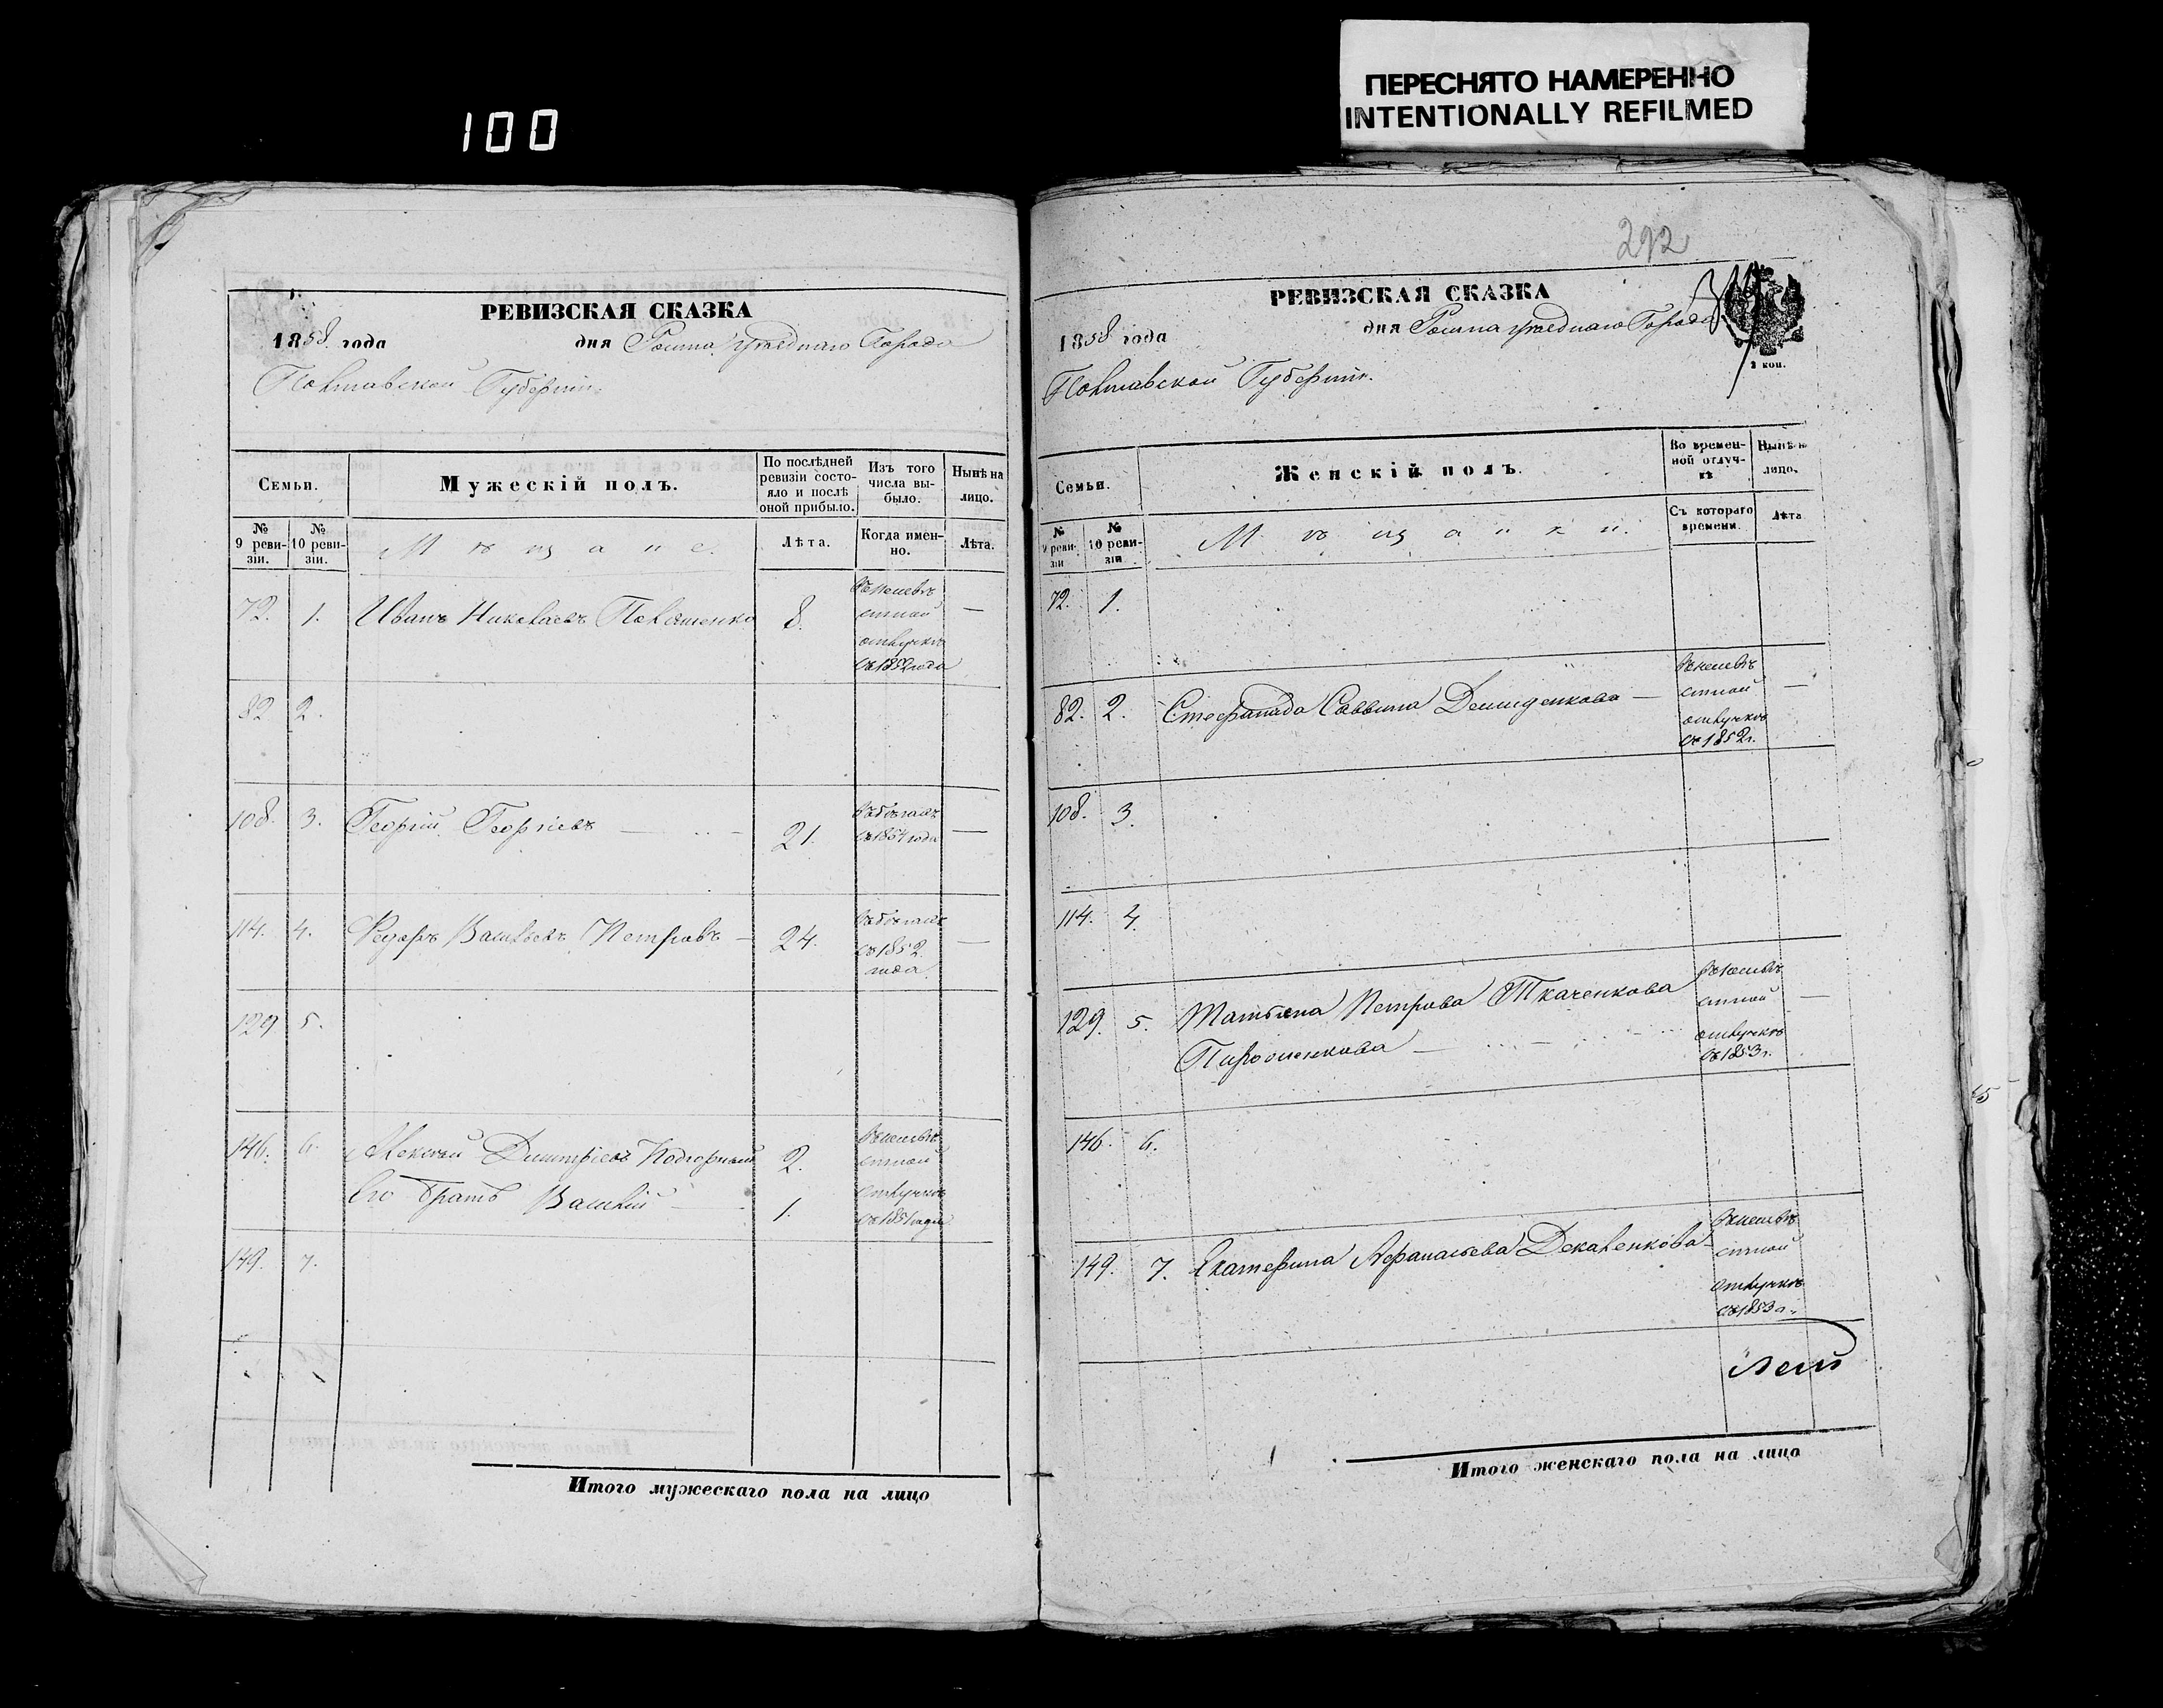 100
ПЕРЕСНЯТО НАМЕРЕННО
INTENTIONALLY REFILMED
РЕВИЗСКАЯ СКАЗКА
1858 года дня Ромна уѣзднаго Города
Полтавской Губерніи.
Семьи.
Мужескій полъ.
По послѣдней ревизіи состояло и послѣ оной прибыло.
Изъ того числа выбыло.
Нынѣ на лицо.
№ 9 ревизіи.
№ 10 ревизіи.
Мѣщане.
Лѣта.
Когда именно.
Лѣта.
72. 1. Иванъ Николаевъ 8. въ неизвѣстной отлучкѣ съ 1852 года —
82 2.
108. 3. Георгій Георгіевъ — 21. въ бѣгахъ съ 1854 года —
114. 4. Федоръ Васильевъ Петровъ — 24. въ бѣгахъ съ 1852 года —
129 5.
146. 6. Алексѣй Димитріевъ Подгорный 2. въ неизвѣстной отлучкѣ съ 1851 года
Его братъ Василій — 1.
149. 7.
Итого мужескаго пола на лицо
292
РЕВИЗСКАЯ СКАЗКА
1858 года дня Ромна уѣзднаго Города
Полтавской Губерніи.
2 коп.
Семьи.
Женскій полъ.
Во временной отлучкѣ
Нынѣ на лицо.
№ 9 ревизіи
№ 10 ревизіи
Мѣщанки.
Съ котораго времени.
Лѣта
72. 1.
82. 2. Стефанида Саввина Демиденкова — въ неизвѣстной отлучкѣ съ 1852 г. —
108. 3.
114. 4.
129. 5. Татьяна Петрова Ткаченкова въ неизвѣстной отлучкѣ съ 1853 г. —
146. 6.
149. 7. Екатерина Афанасьева Декаленкова въ неизвѣстной отлучкѣ съ 1853 г.
Итого женскаго пола на лицо